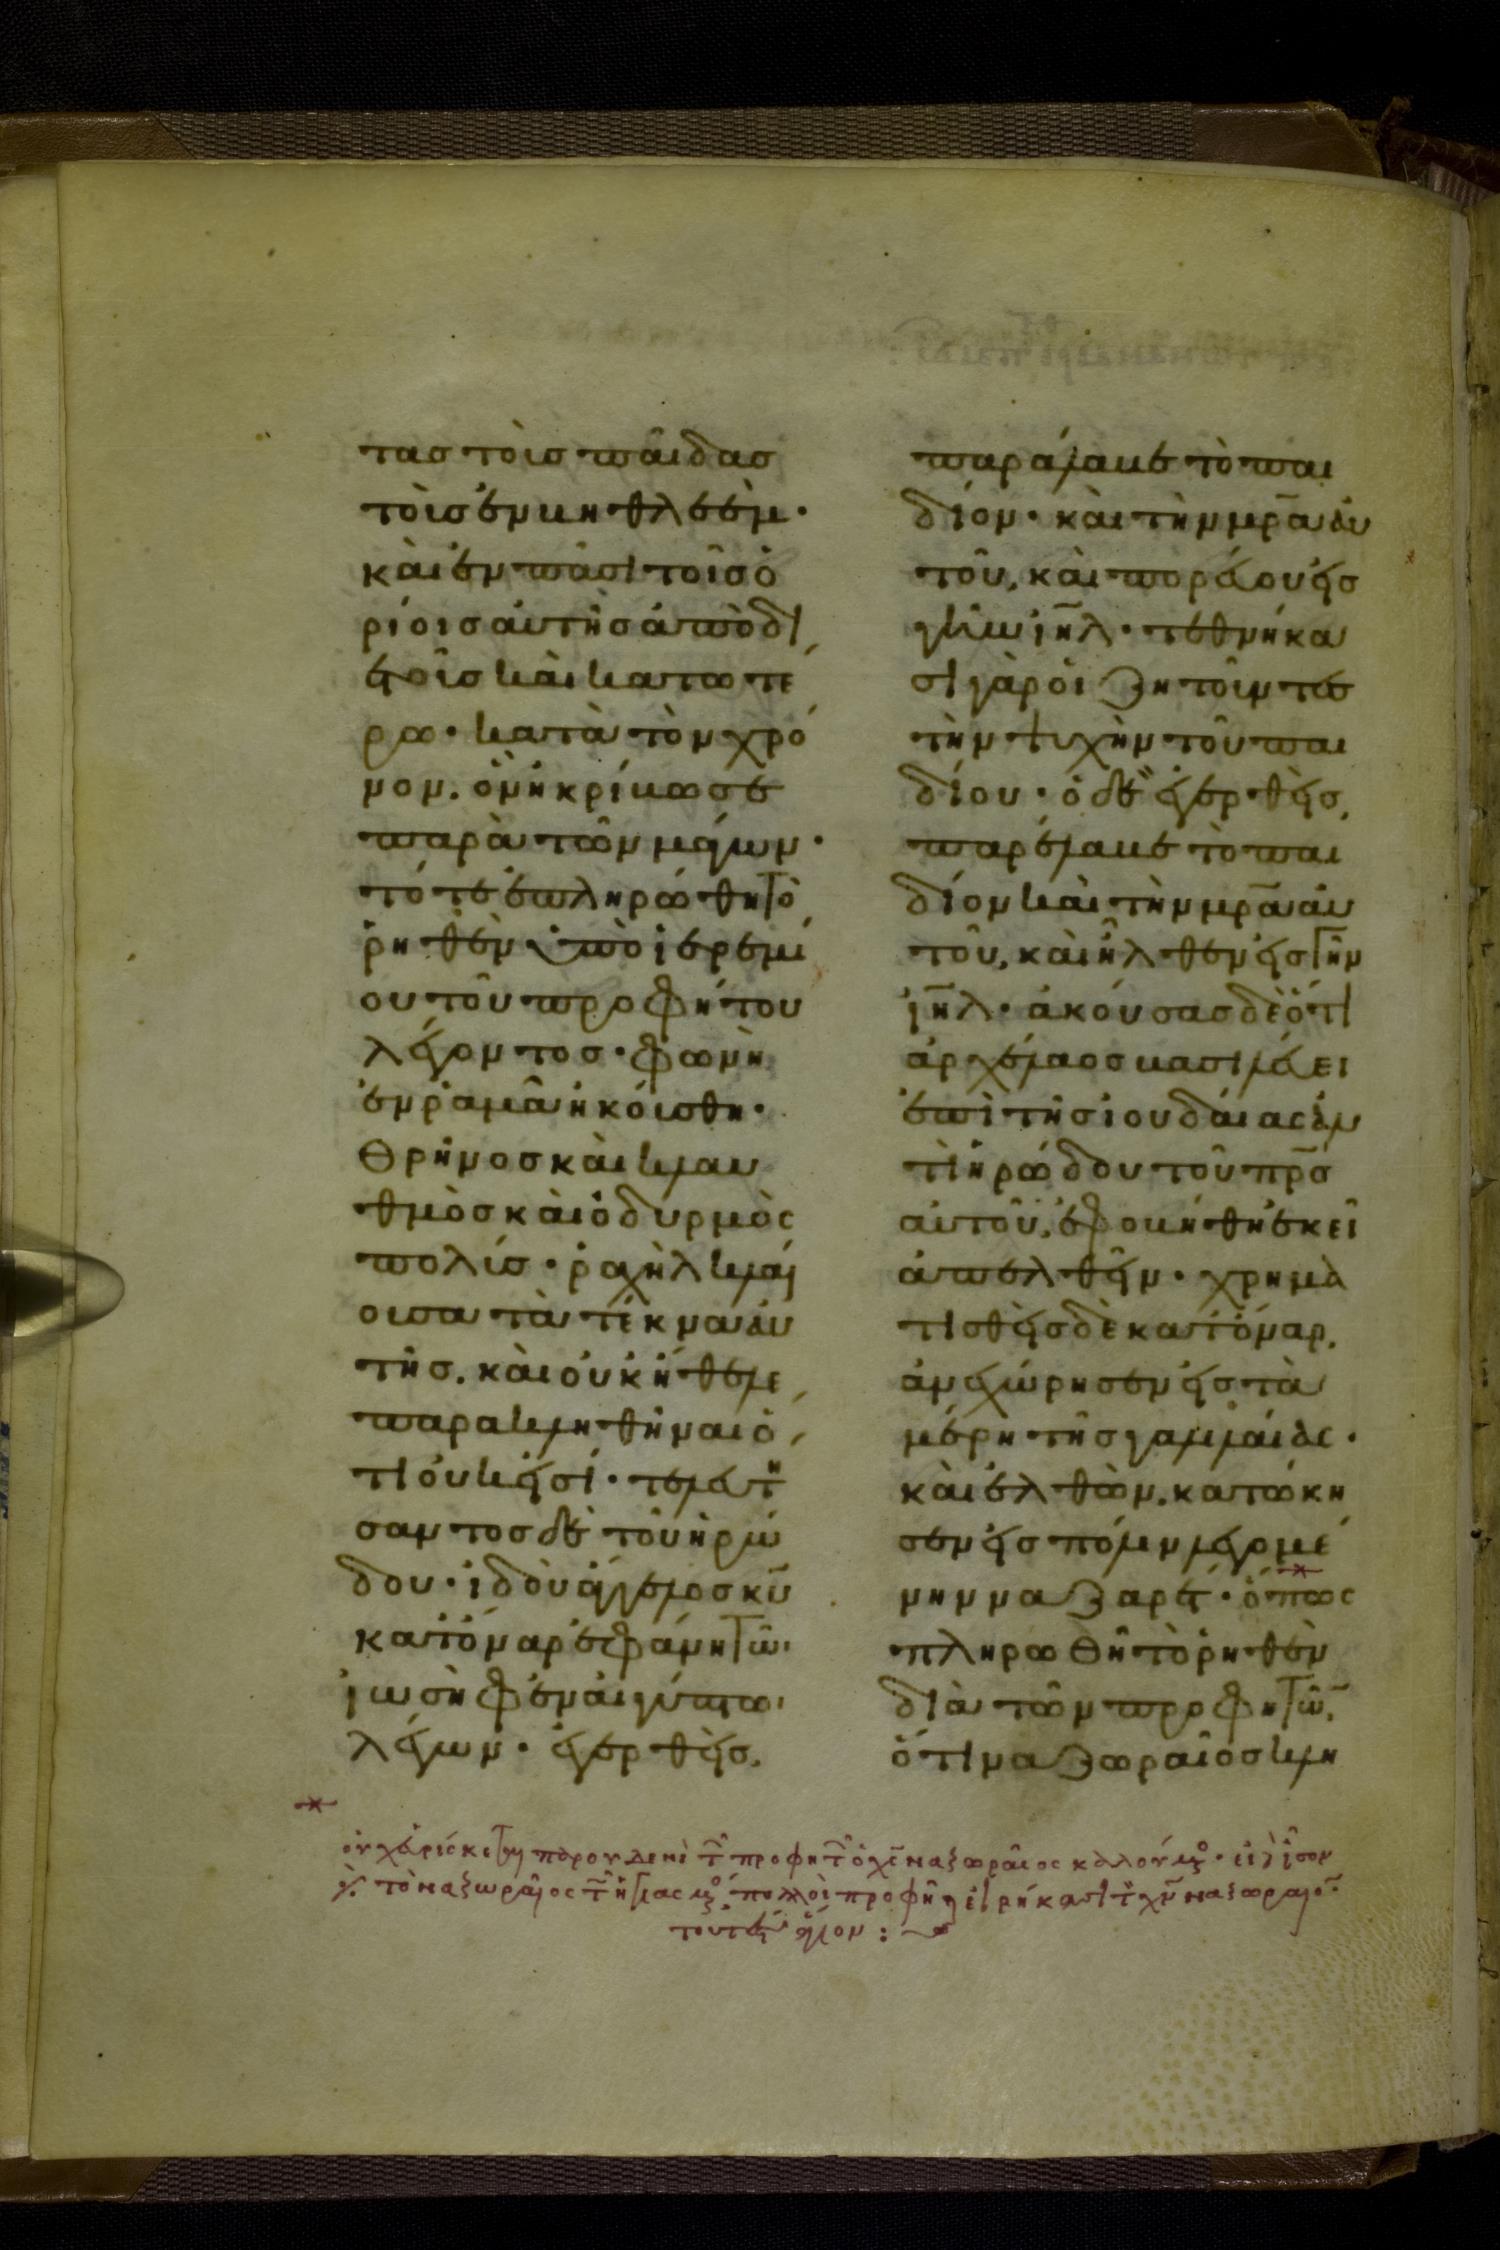 τας τοὺς παῖδας
τοὺς ἐν βηθλεὲμ·
καὶ ἐν πᾶσι τοῖς ὁ
ρίοις αὐτῆς ἀπὸ δι
ετοῦς καὶ κατωτέ
ρω· κατὰ τὸν χρό
νον, ὃν ἠκρίβωσε
παρὰ τῶν μάγων·
τότε ἐπληρώθη τὸ
ῥηθὲν ὑπὸ ἱερεμί
ου τοῦ προφήτου
λέγοντος· φωνὴ
ἐν ῥαμᾶ ἠκούσθη·
Θρῆνος καὶ κλαυ
θμὸς καὶ ὀδυρμὸς
πολύς· ῥαχὴλ κλαί
ουσα τὰ τέκνα αὐ
τῆς, καὶ οὐκ ἤθελε
παρακληθῆναι ὅ
τι οὐκ εἰσί· τελευτη
σαντος δὲ τοῦ ἡρώ
δου· ἰδοὺ ἄγγελος κ̅υ̅
κατόναρ ἐφάνη τῶ
ἰωσὴφ ἐν αἰγύπτω
λέγων· ἐγερθεὶς,
παράλαβε τὸ παι
δίον· καὶ τὴν μ̅ρ̅α̅ αὐ
τοῦ, καὶ πορεύου εἰς
γῆν ι̅η̅λ̅· τεθνήκα
σι γὰρ οἱ ζητοῦντες
τὴν ψυχὴν τοῦ παι
δίου· ὁ δὲ ἐγερθεὶς,
παρέλαβε τὸ παι
δίον καὶ τὴν μ̅ρ̅α̅ αὐ
τοῦ, καὶ ἦλθεν εἰς γῆν
ι̅η̅λ̅· ἀκούσας δὲ ὅτι
ἀρχέλαος βασιλεύει
ἐπὶ τῆς ἰουδαίας ἀν
τὶ ἡρώδου τοῦ π̅ρ̅ς̅
αὐτοῦ, ἐφοβήθη ἐκεῖ
ἀπελθεῖν· χρημα
τισθεὶς δὲ κατόναρ,
ἀνεχώρησεν εἰς τὰ
μέρη τῆς γαλιλαίας·
καὶ ἐλθὼν, κατώκη
σεν εἰς πόλιν λεγομέ
νην ναζαρέτ· ὅπως
πληρωθῆ τὸ ῥηθὲν
διὰ τῶν προφητῶ̅,
ὅτι ναζωραῖος κλη
οὐχ εὑρίσκεται παρ οὐδενὶ τῶν προφητῶν ὁ χ̅ς̅ ναζωραῖος καλούμενος·
τὸ ναζωραῖος πολλοὶ προφῆται εἰρήκασι τὸν χ̅ν̅ ναζωραῖον
τουτέστιν ἅγιον :